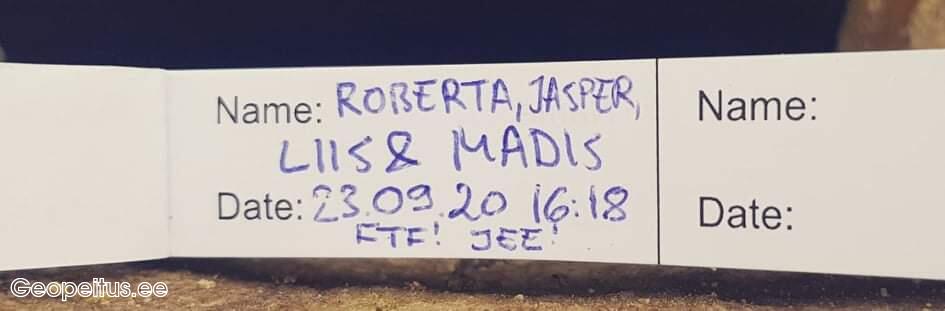 Name: ROBERTA, JASPER,
LIIS & MADIS
Date: 23.09.20 16:18
FTF! JEE!
Name:
Date:
Geopeitus.ee